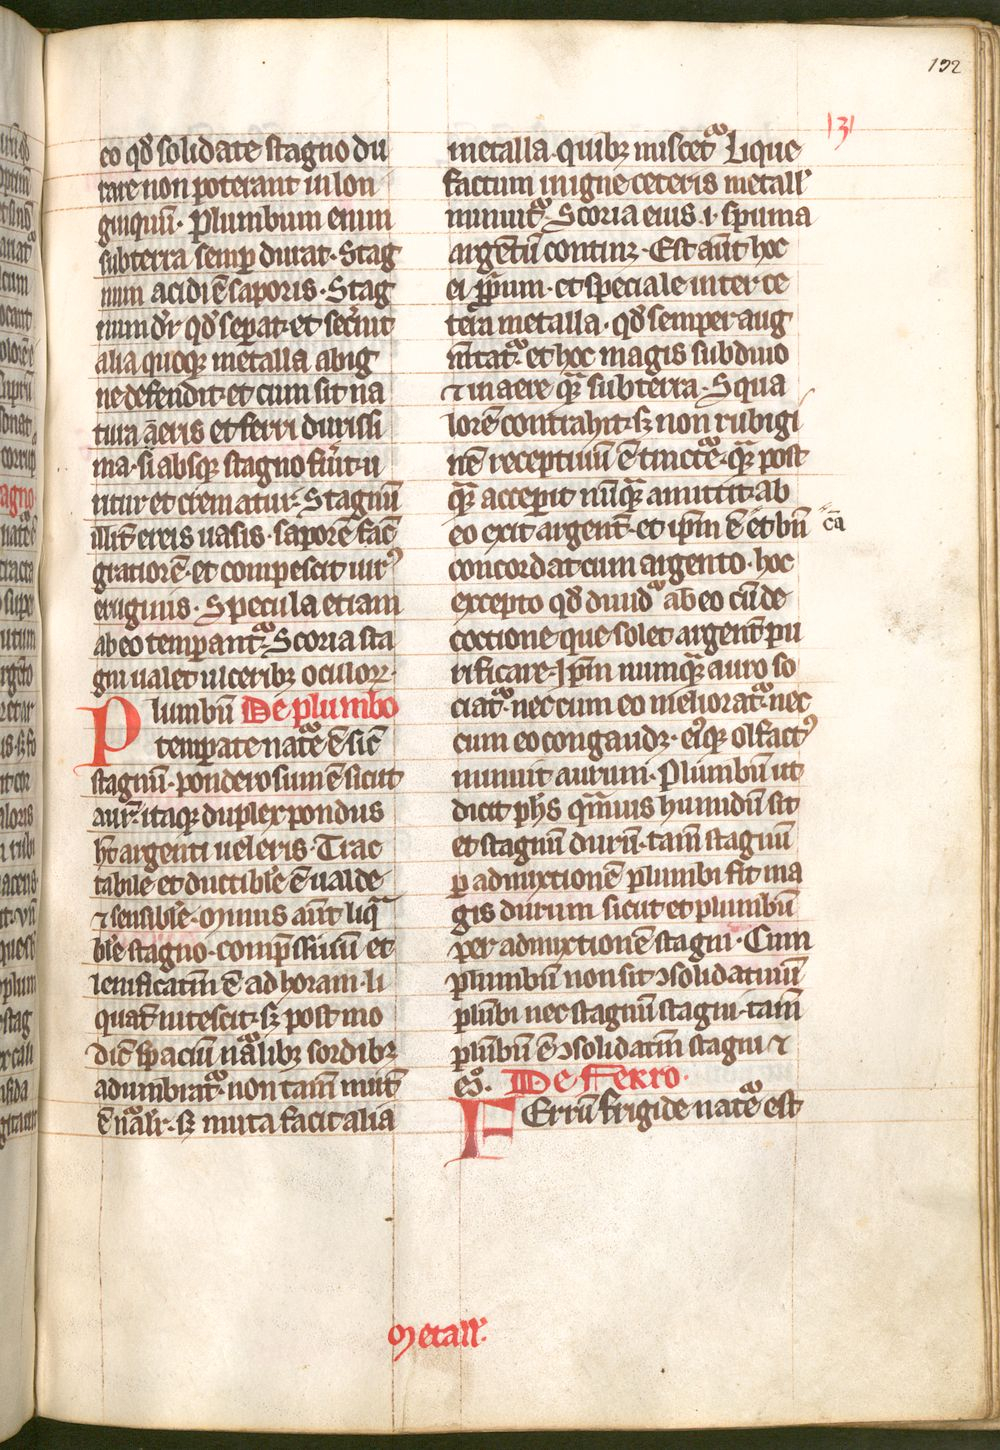 192
131
eo qđ solidate stagno du
rare non poterant in lon
ginquū. Plumbum enim
subterra semꝑ durat. Stag
num acidi ē saporis. Stag
num dr̄ qđ seꝑat. et sec̄nit
alia quoqꝫ metalla ab ig
ne defendit. et cum sit na
tura aeris et ferri durissi
ma. si absqꝫ stagno fūit. u
ritur et crematur. Stagnū
illit̄ ereis uasis. saporē fac̄
gratiorē. et compescit uirꝰ
eruginis. Specula etiam
ab eo temꝑant᷑. Scoria sta
gni ualet ulceribꝫ oculoꝝ.
Plumbū De plumbo
temꝑate nat᷑e ē sic̄
stagnū. ponderosum ē sicut
aur̄. itaqꝫ duplex pondus
hꝫ argenti ueleris. Trac
tabile et ductibłe ē ualde
⁊ sensibłe. Minus aūt liqͣ
błe stagno. comp̄ssiuū et
lenificatiū ē ad horam. li
quat̄ nitescit. sꝫ post mo
dic̄ spaciū nãlibꝫ sordibꝫ
adumbrat᷑. non tam̄ mut̄
ē nãlr̄. sꝫ muta facit alia
metalla. quibꝫ miscet᷑. Lique
factum in igne ceteris metall̄
minuit᷑. Scoria eius .i. spuma
argētū continꝫ. Est aūt hoc
ei ꝓprium. et speciale inter ce
tera metalla. qđ semper aug
m̄tat᷑. et hoc magis sub diuo
⁊ in aere qͣ subterra. Squa
lorē contrahit. sꝫ non rubigi
nē receptiuū ē tinct᷑e. qͣ post
qͣ acceꝑit nūqͣ amittit. ab
eo exit argent̄. et ip̄m ē et bn̄ cā
concordat cum argento. hoc
excepto qđ diuid᷑ ab eo cū de
coctione que solet argent̄ pu
rificare. Ip̄m numqͣ auro so
ciat᷑. nec cum eo meliorat᷑. nec
cum eo congaudꝫ. eiꝰqꝫ olfactꝰ
minuit aurum. Plumbū ut
dicit ph̄s qͣmuis humidū sit
et stagnū durū. tam̄ stagnū
ꝑ admixtionē plumbi fit ma
gis durum sicut et plumbū
per admixtionē stagni. Cum
plumbū non sit ꝯsolidatiuū
plūbi nec stagnū stagni. tam̄
plūbū ē ꝯsolidatiū stagni ⁊
eͦ. De Ferro.
Ferrū frigide nat᷑e est
Metall̄.